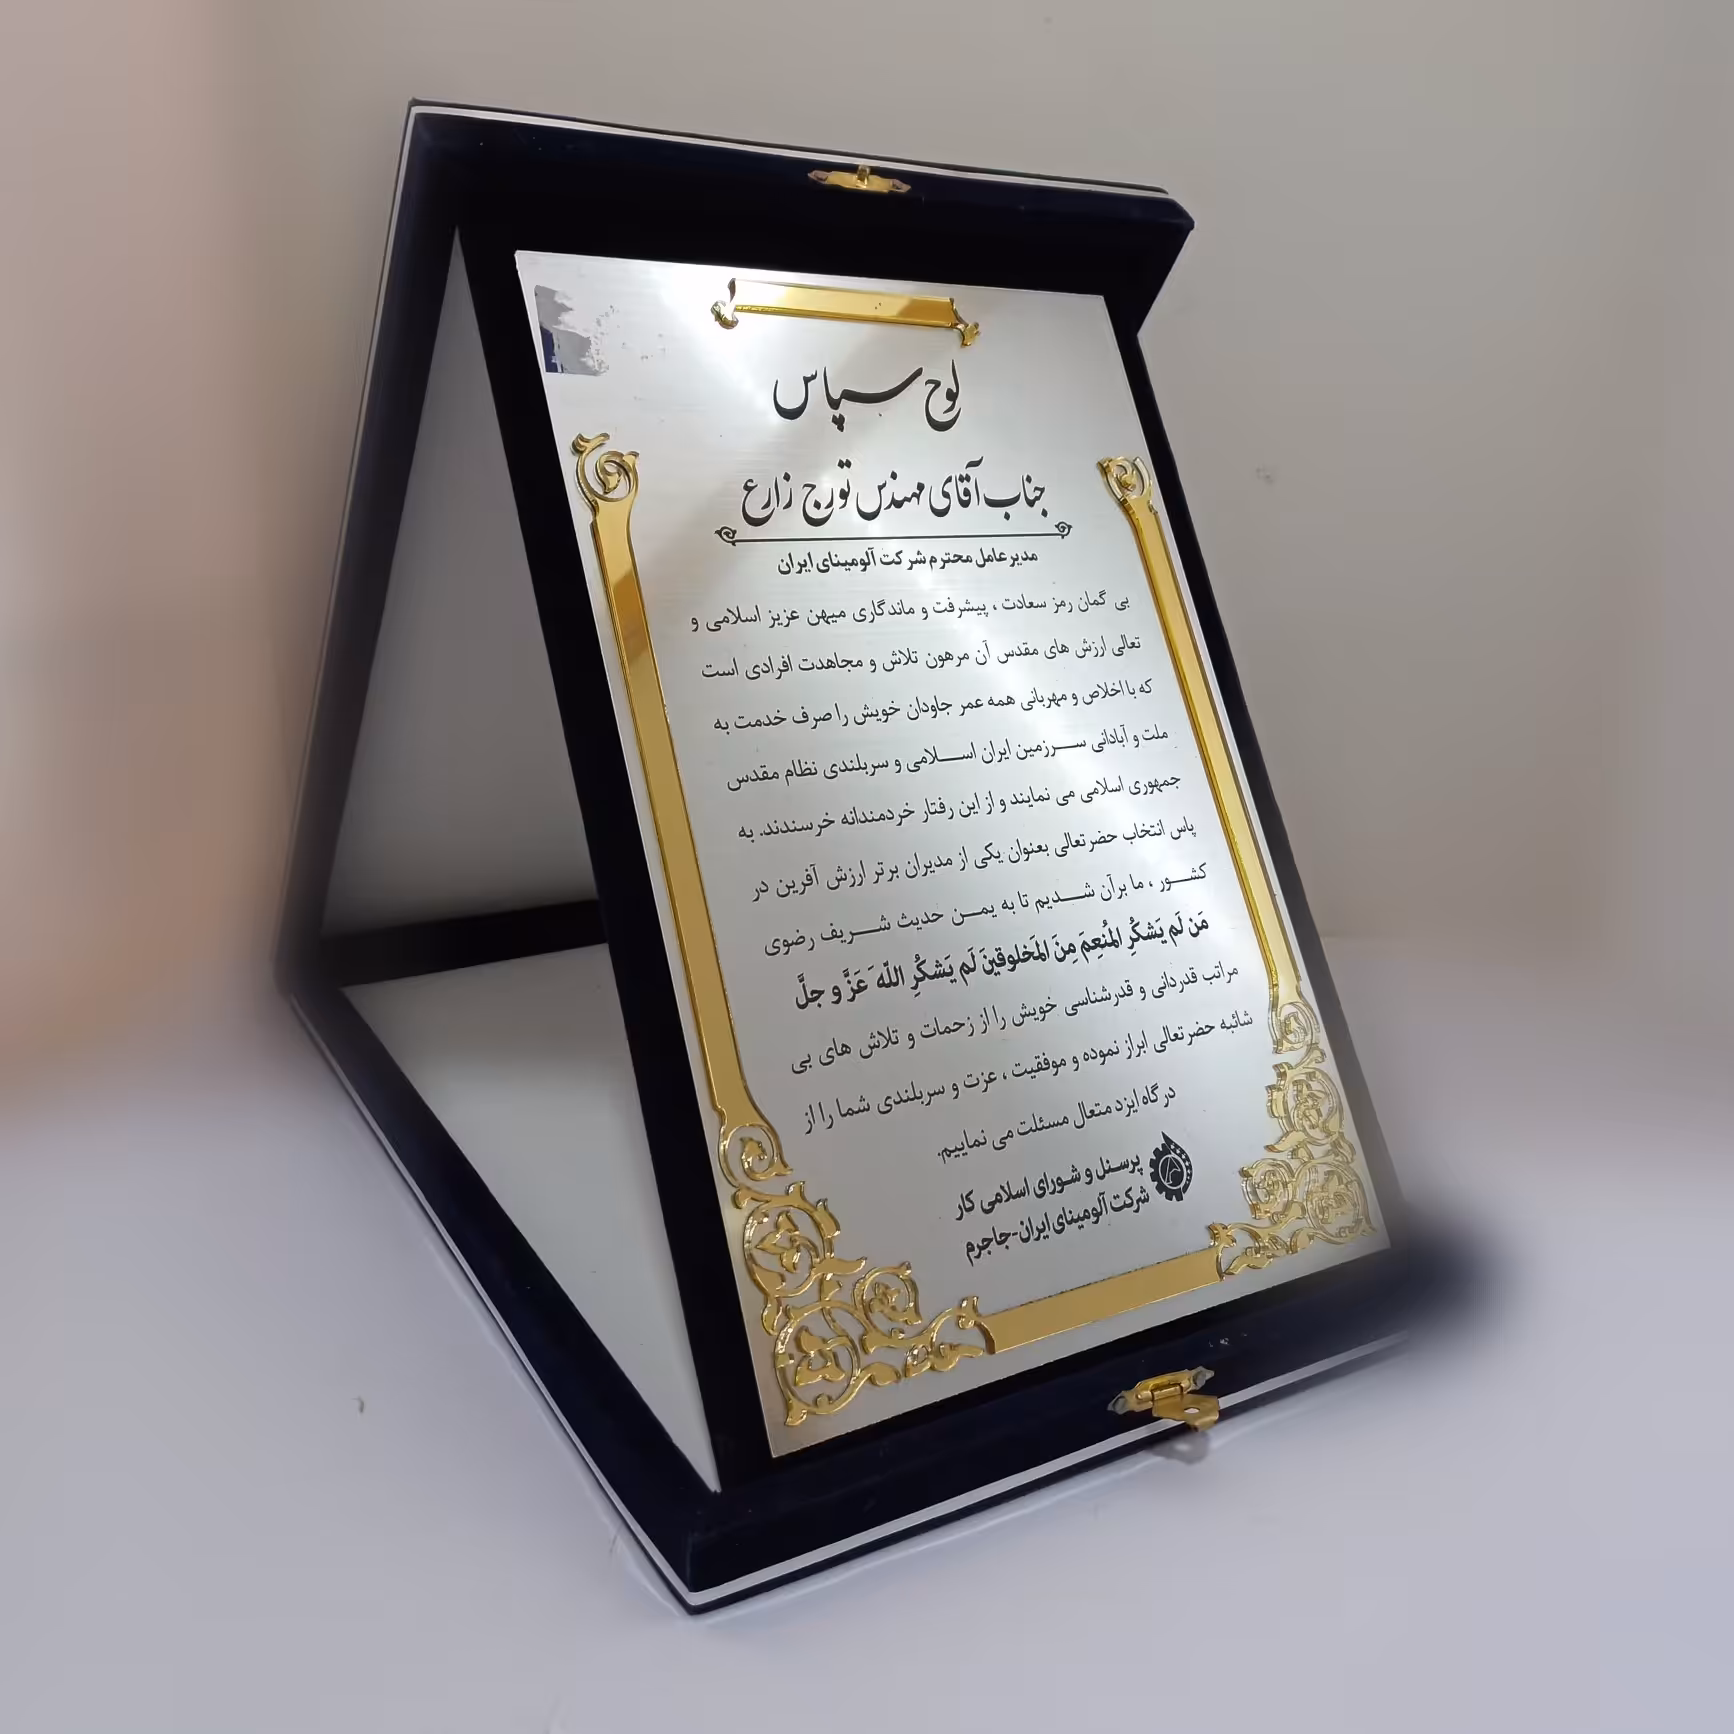 لوح سپاس
جناب آقای مهندس تورج زارع
مدیرعامل محترم شرکت آلومینای ایران
بی گمان رمز سعادت ، پیشرفت و ماندگاری میهن عزیز اسلامی و
تعالی ارزش های مقدس آن مرهون تلاش و مجاهدت افرادی است
که با اخلاص و مهربانی همه عمر جاودان خویش را صرف خدمت به
ملت و آبادانی سرزمین ایران اسلامی و سربلندی نظام مقدس
جمهوری اسلامی می نمایند و از این رفتار خردمندانه خرسندند. به
پاس انتخاب حضرتعالی بعنوان یکی از مدیران برتر ارزش آفرین در
کشور ، ما برآن شدیم تا به یمن حدیث شریف رضوی
مَن لَم یَشکُرِ المُنعِمَ مِنَ المَخلوقینَ لَم یَشکُرِ اللّهَ عَزَّ و جلَّ
مراتب قدردانی و قدرشناسی خویش را از زحمات و تلاش های بی
شائبه حضرتعالی ابراز نموده و موفقیت ، عزت و سربلندی شما را از
درگاه ایزد متعال مسئلت می نماییم.
پرسنل و شورای اسلامی کار
شرکت آلومینای ایران-جاجرم